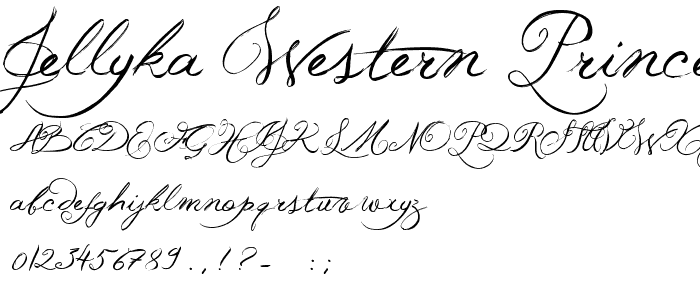 Jellyka Western Prince
ABCDEFGHIJKLMNOPQRSTUVWX
abcdefghijklmnopqrstuvwxyz
0123456789.,!?- :;